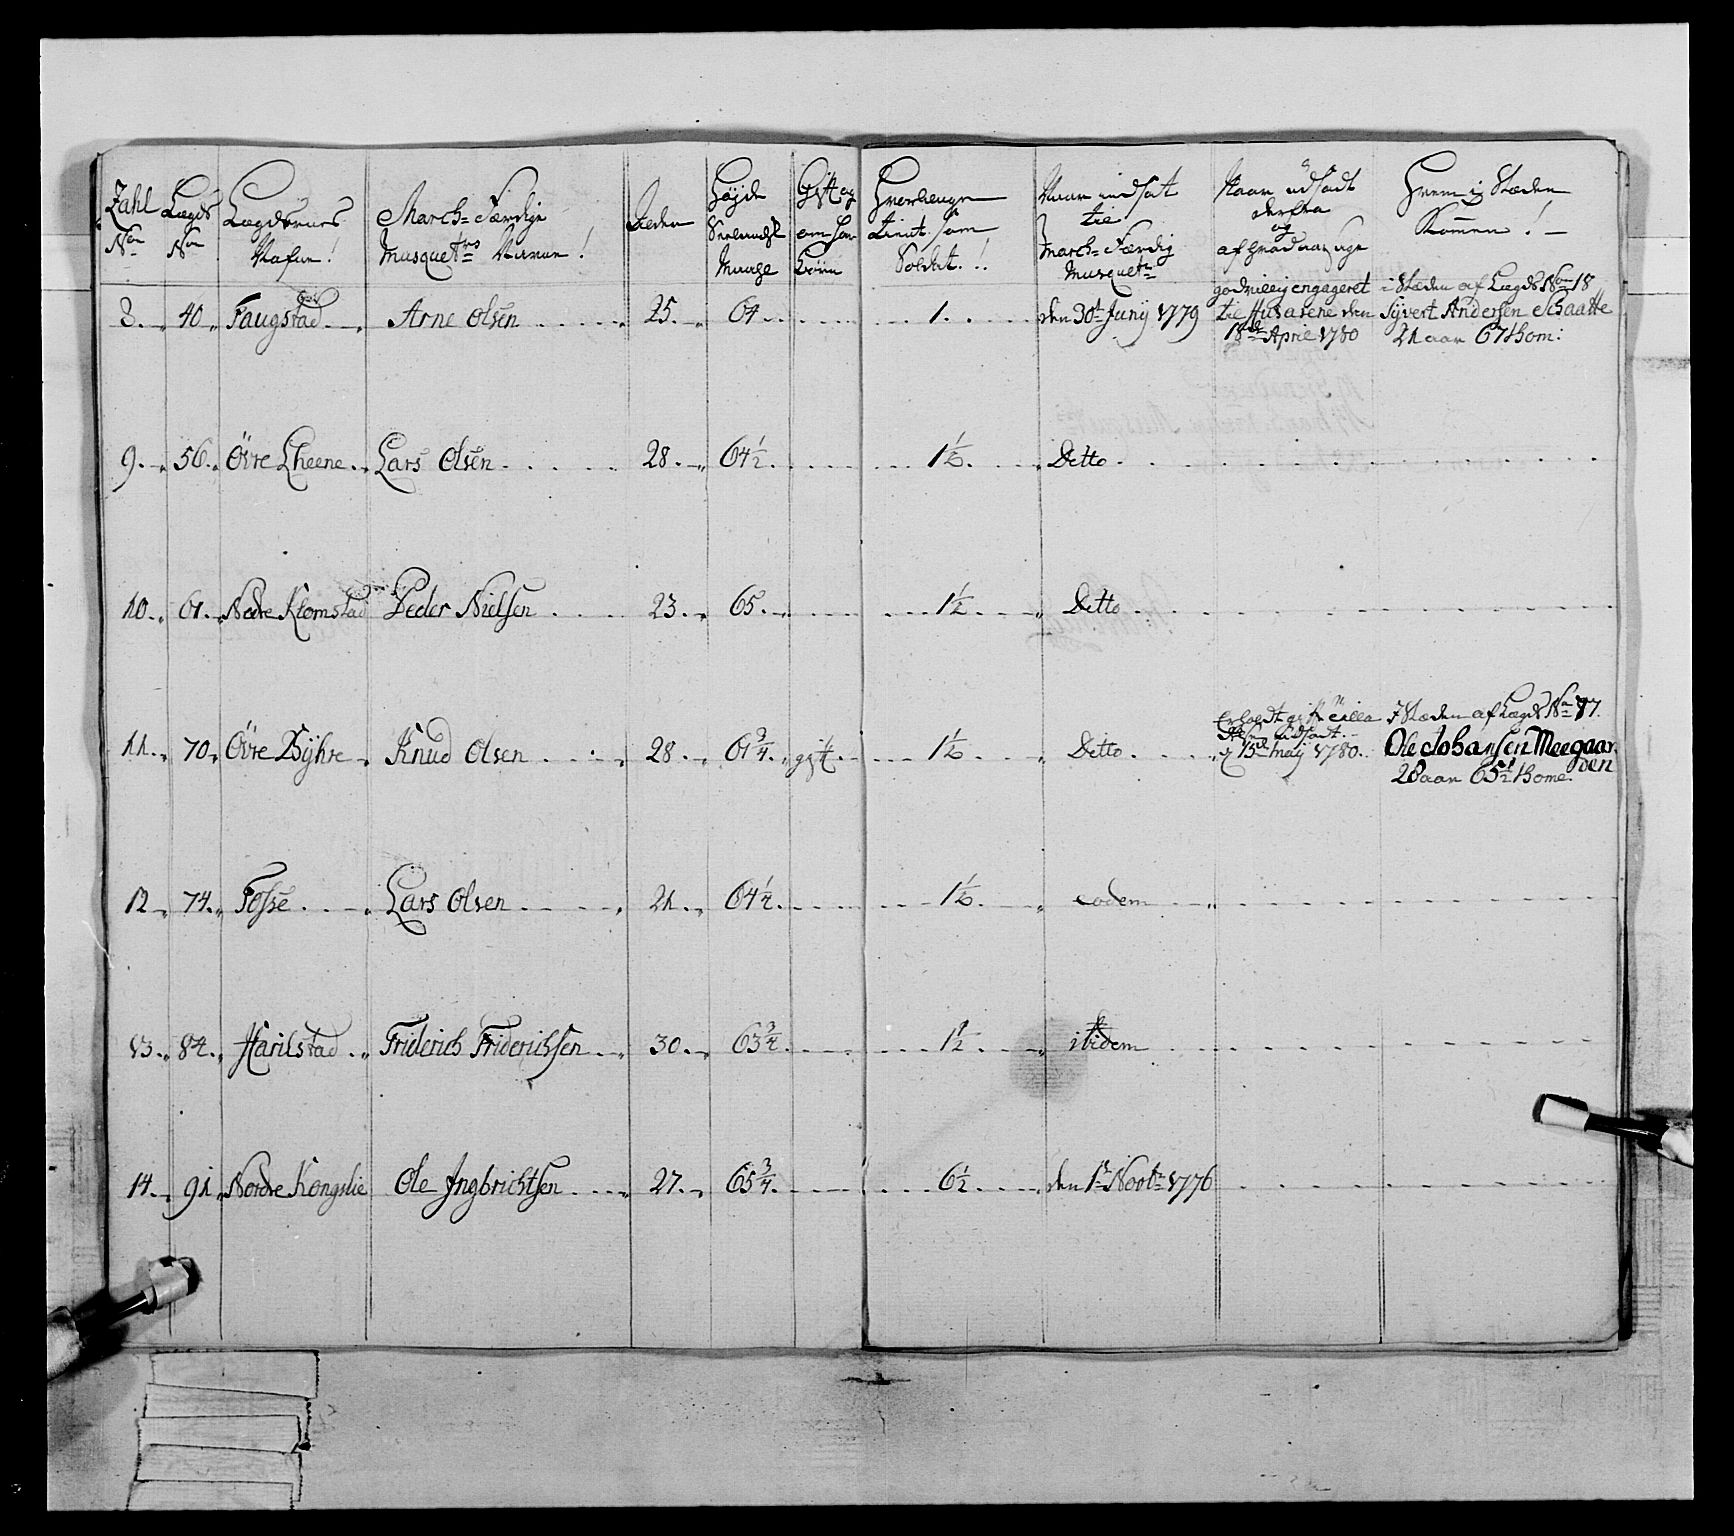 Zahl No
Lægds No
Lægdernes Nafne!
March-Færdige Musquetrs Navne!
Alder
Højde Siælandsk Maal
Gift og om har Børn
Hvorlenge tient som Soldat.!.
Naar indsat til March-Færdig Musquetr
Naar udsadt derfra og af hvad aarsage
Hvem i Stæden Kommen!-
8. 40 Faugstad Arne Olsen 25. 64 1. den 30t Junij 1779 godvillig engageret til Husarene den 18de April 1780 i Stæden af Lægds No 18 Syvert Andersen Schaatte 21 aar 67 tom:
9. 56. Øvre Lheene Lars Olsen 28. 64½ 1½ Detto
10. 61. Nedre Klomstad Peder Nielsen 23. 65. 1½ Detto
11. 70 Øvre Byhre Knud Olsen 28. 61¾ gift 1½ Detto 15de Maij 1780. I Stæden af Lægds No 77. Ole Johansen Meegaarden 28 aar 65½ tome
12 74. Fosse Lars Olsen 21. 64¼ 1½ eodem
13. 84. Harilstad Friderich Friderichsen 30. 63¾ 1½ ibidem
14. 91 Nordre Kongslie Ole Ingbrichtsen 27. 65¾ 6½ den 1t Novbr 1776